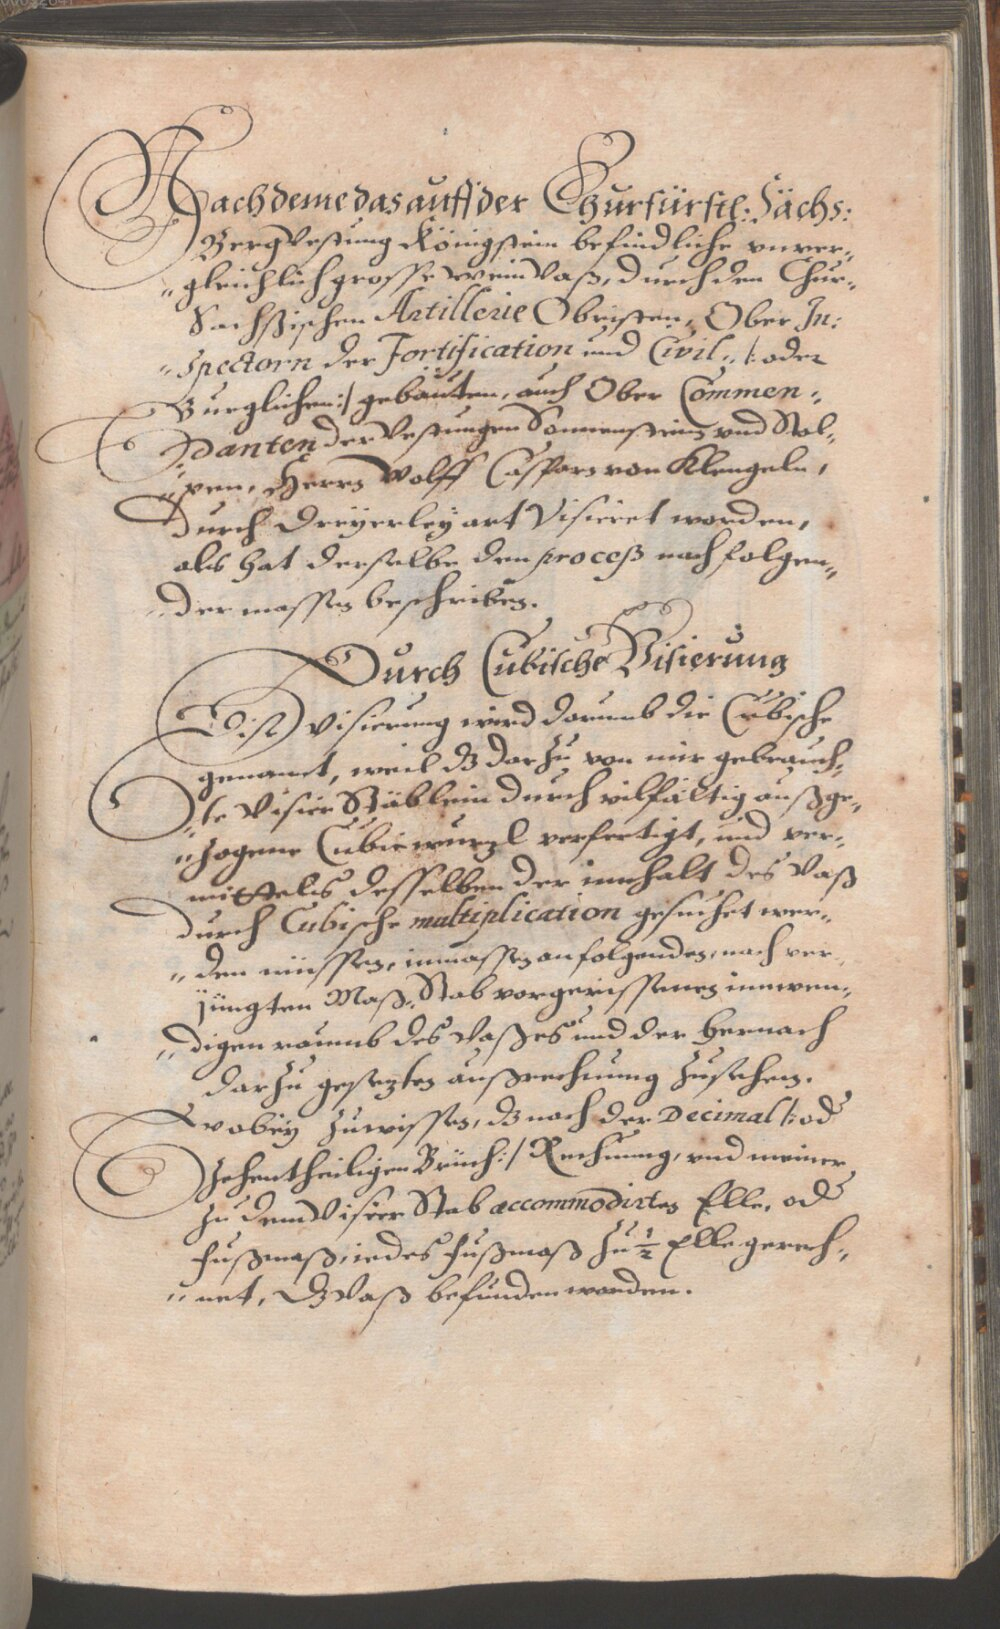 Nachdeme das auff der Churfürstl: Sächs:
BergVestung Königstein befindliche unver„
„gleichlich grosse WeinVaß, durch den Chur„
Sächßischen Artillerie Obristen, Ober In:
„spectorn der Fortification und Civil„ /: oder
Burglichen :/ gebäuten, auch Ober Commen„
„danten der Vestungen Sonnenstein und Stol„
„pen, Herrn Wolff Casparn von Klengeln,
durch dreyerley art Visieret worden,
als hat derselbe den proceß nachfolgen„
„der massen beschrieben.
Durch Cubische Visierung
Dise Visierung wird darumb die Cubische
genannt, weil dz darzu von mir gebrauch„
„te Visier Stäblein durch vilfältig außge„
„zogene Cubicwurzl verfertigt, und ver„
mittels desselben der innhalt des Vaß
durch Cubische multiplication gesuchet wer„
„den müssen, inmassen an folgenden, nach ver„
jüngten Maß-Stab vorgerissenen innwen„
„digen raumb des Vaßes und der hernach
darzu gesezten außrechnung zusehen.
Wobey zuwissen, dz nach der Decimal /: od
Zehentheiligen Brüch :/ Rechnung, und meiner
zu dem Visier Stab accommodirten Elle, od
fußmaß, iedes fußmaß zu 1/2 Elle gerech„
„net, dz Vaß befunden worden.